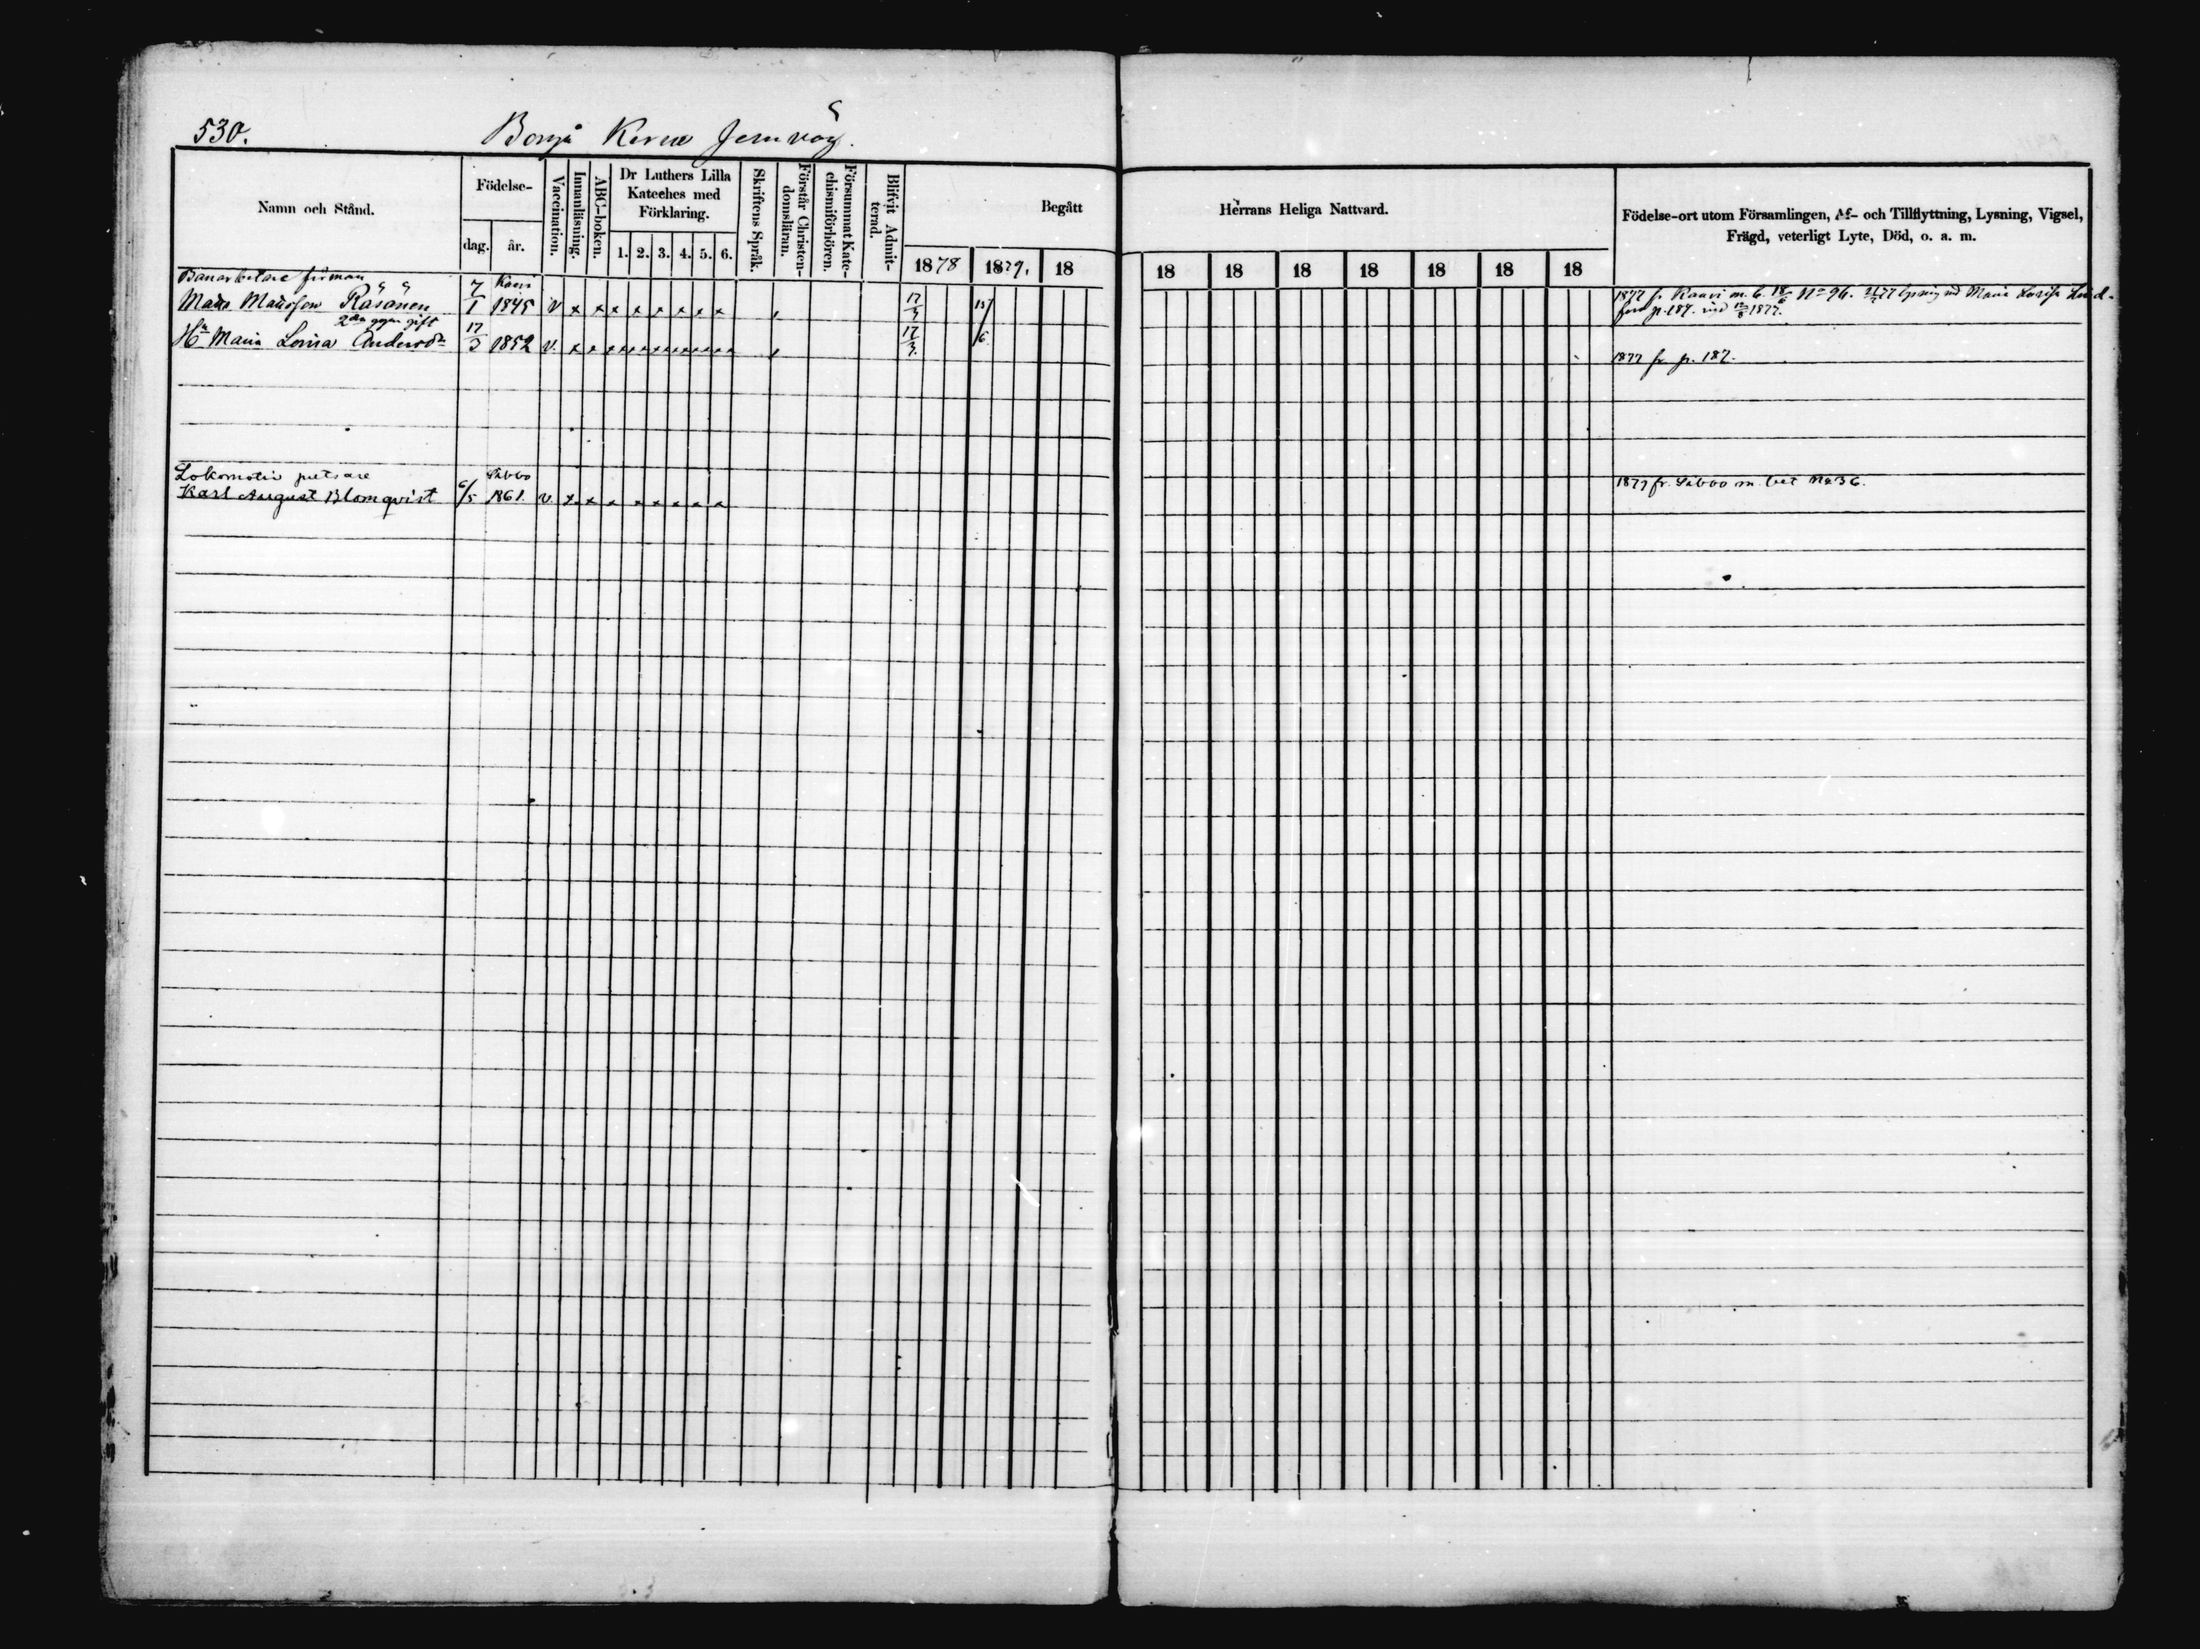 530. Borgå Kerva Jernväg.
Namn och Stånd.
Födelse-
dag. år.
Vaccination.
Innanläsning.
ABC-boken.
Dr Luthers Lilla
Kateches med
Förklaring.
1. 2. 3. 4. 5. 6.
Skriftens Språk.
Förstår Christen-
domsläran.
Försummat Kate-
chismiförhören.
Blifvit Admit-
terad.
Begått
1878 1879. 18
Herrans Heliga Nattvard.
18 18 18 18 18 18 18
Födelse-ort utom Församlingen, Af- och Tillflyttning, Lysning, Vigsel,
Frägd, veterligt Lyte, Död, o. a. m.
Banarbetare förman Kavi
Mats Matsson Räsänen 7/1 1845 v x x x x x x x x 17/3 1877 fr. Kaavi m. b. 18/6 No 96. lysning med Maria Lovisa
p. 187. 1877.
2dra ggn gift
Hu Maria Lovisa Andersdr 17/3 1852 v. 17/3 6 1877 fr p. 187.
Lokomotiv putsare Sibbo
Karl August Blomqvist 6/5 1861. v. x x x x x x x x 1877 fr. Sibbo m. bet No 36.